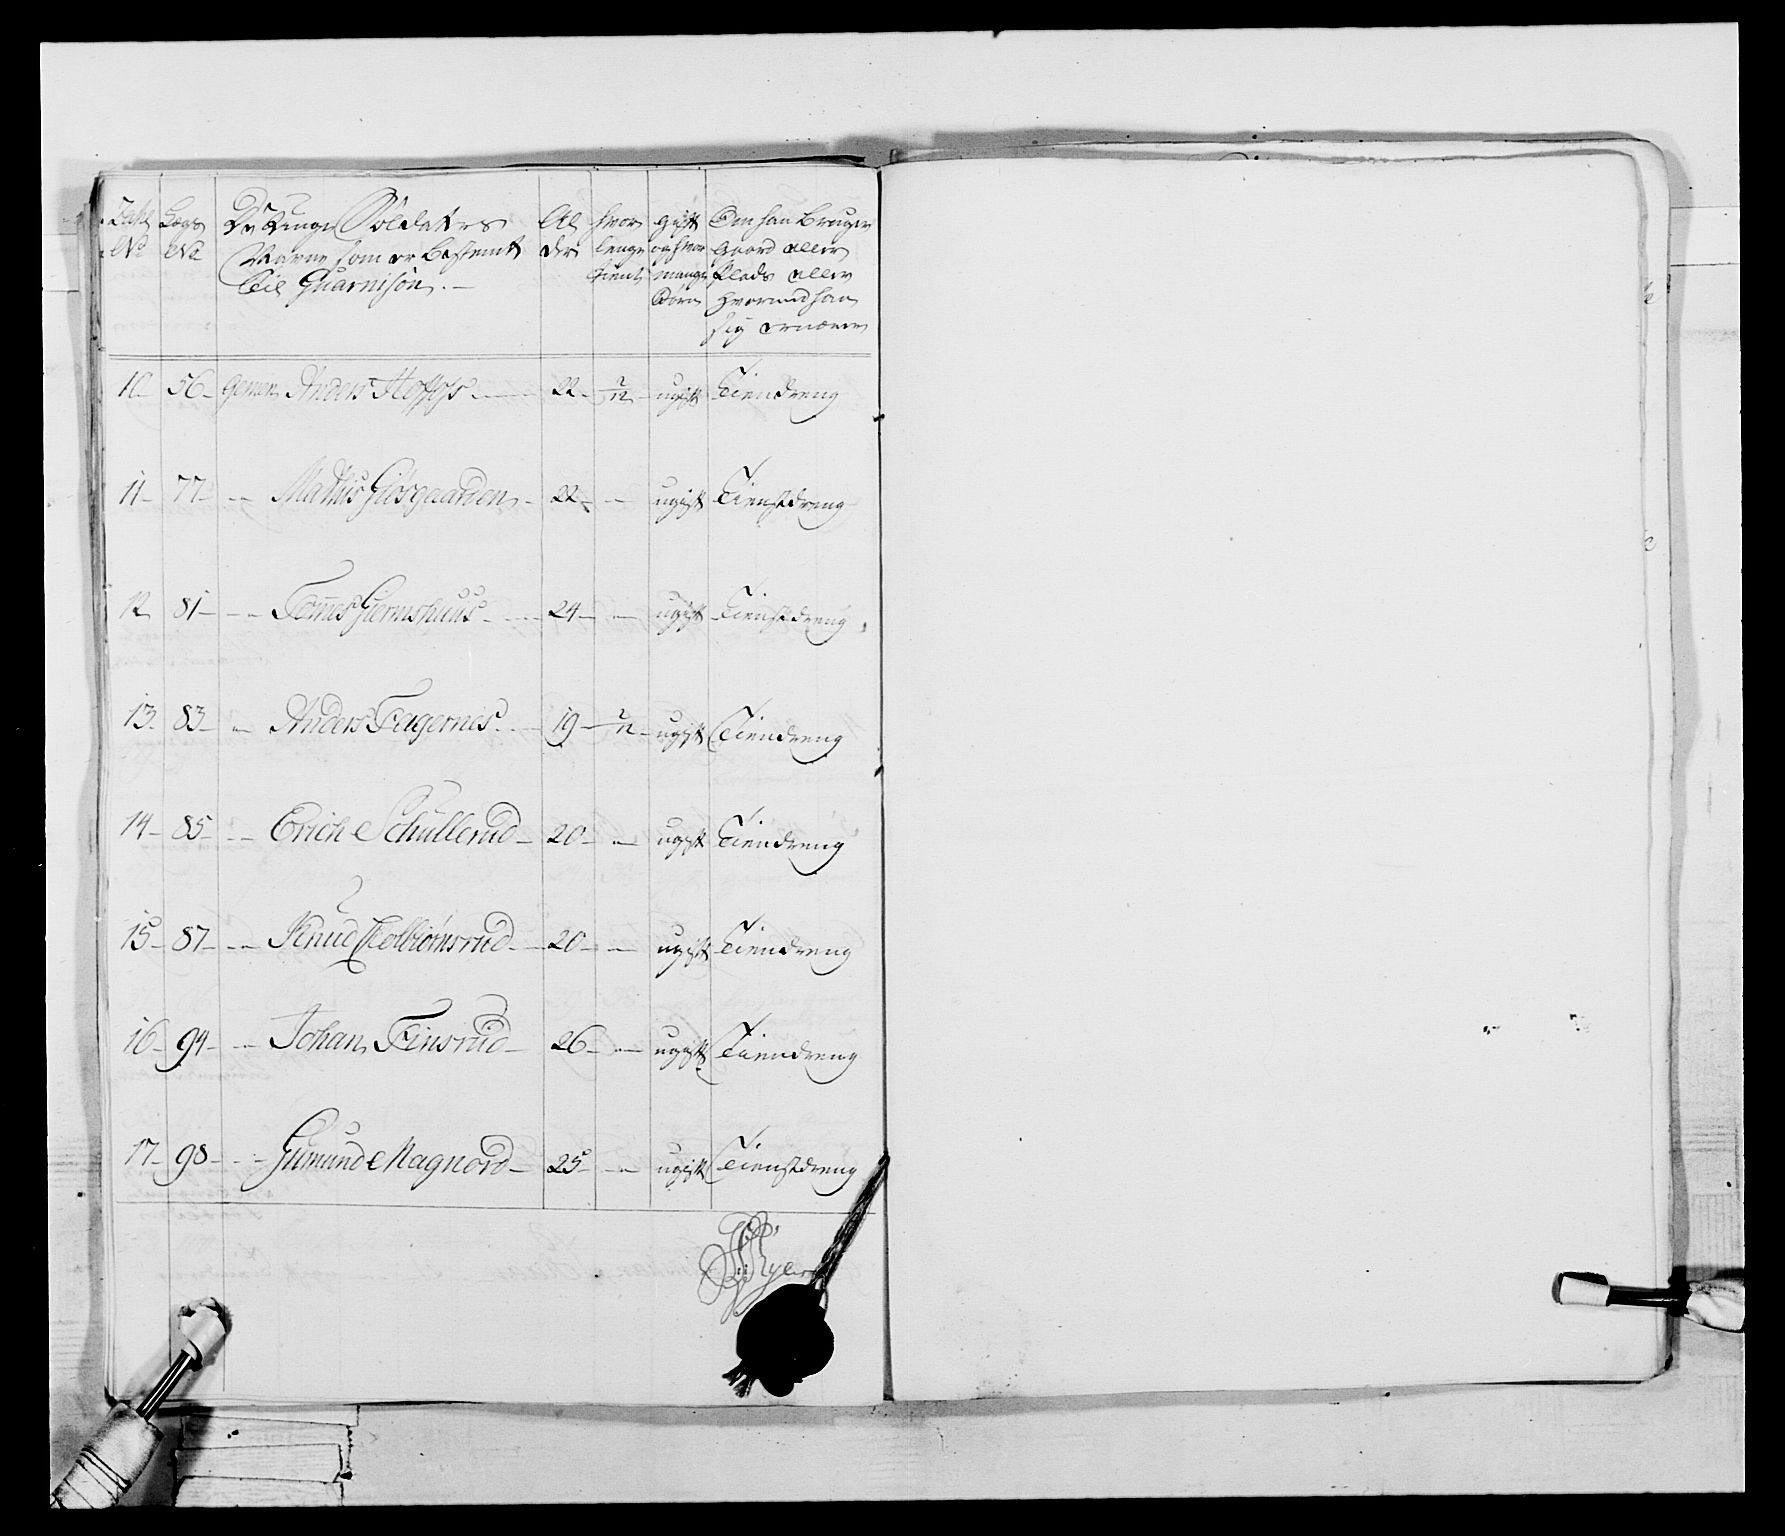 Tahl No | Legs No | De Unge Soldaters Navne som er bestemt til Guarnison.- | Al der | hvor lenge tient | gift og hvor mange Børn | Om han bruger Gaard eller Plads eller hvormed han sig ernærer
10- 56- Gemen Anders Hoffos 22- 2/12- ugift Tiendreng
11- 77- -"- Mathis Giosgaarden 22- -"- ugift Tienstdreng
12 81- -"- Tomes Giermshuus 24- -"- ugift Tienstdreng
13- 83- -"- Anders Fagernes 19- 2/12- ugift Tiendreng
14- 85- -"- Erich Schullerud 20- -"- ugift Tiendreng
15- 87- -"- Knud Kolbiørnsrud 20- -"- ugift Tiendreng
16- 94- -"- Johan Finsrud 26- -"- ugift Tiendreng
17- 98- -"- Gumund Magnord 25- -"- ugift Tienstdreng